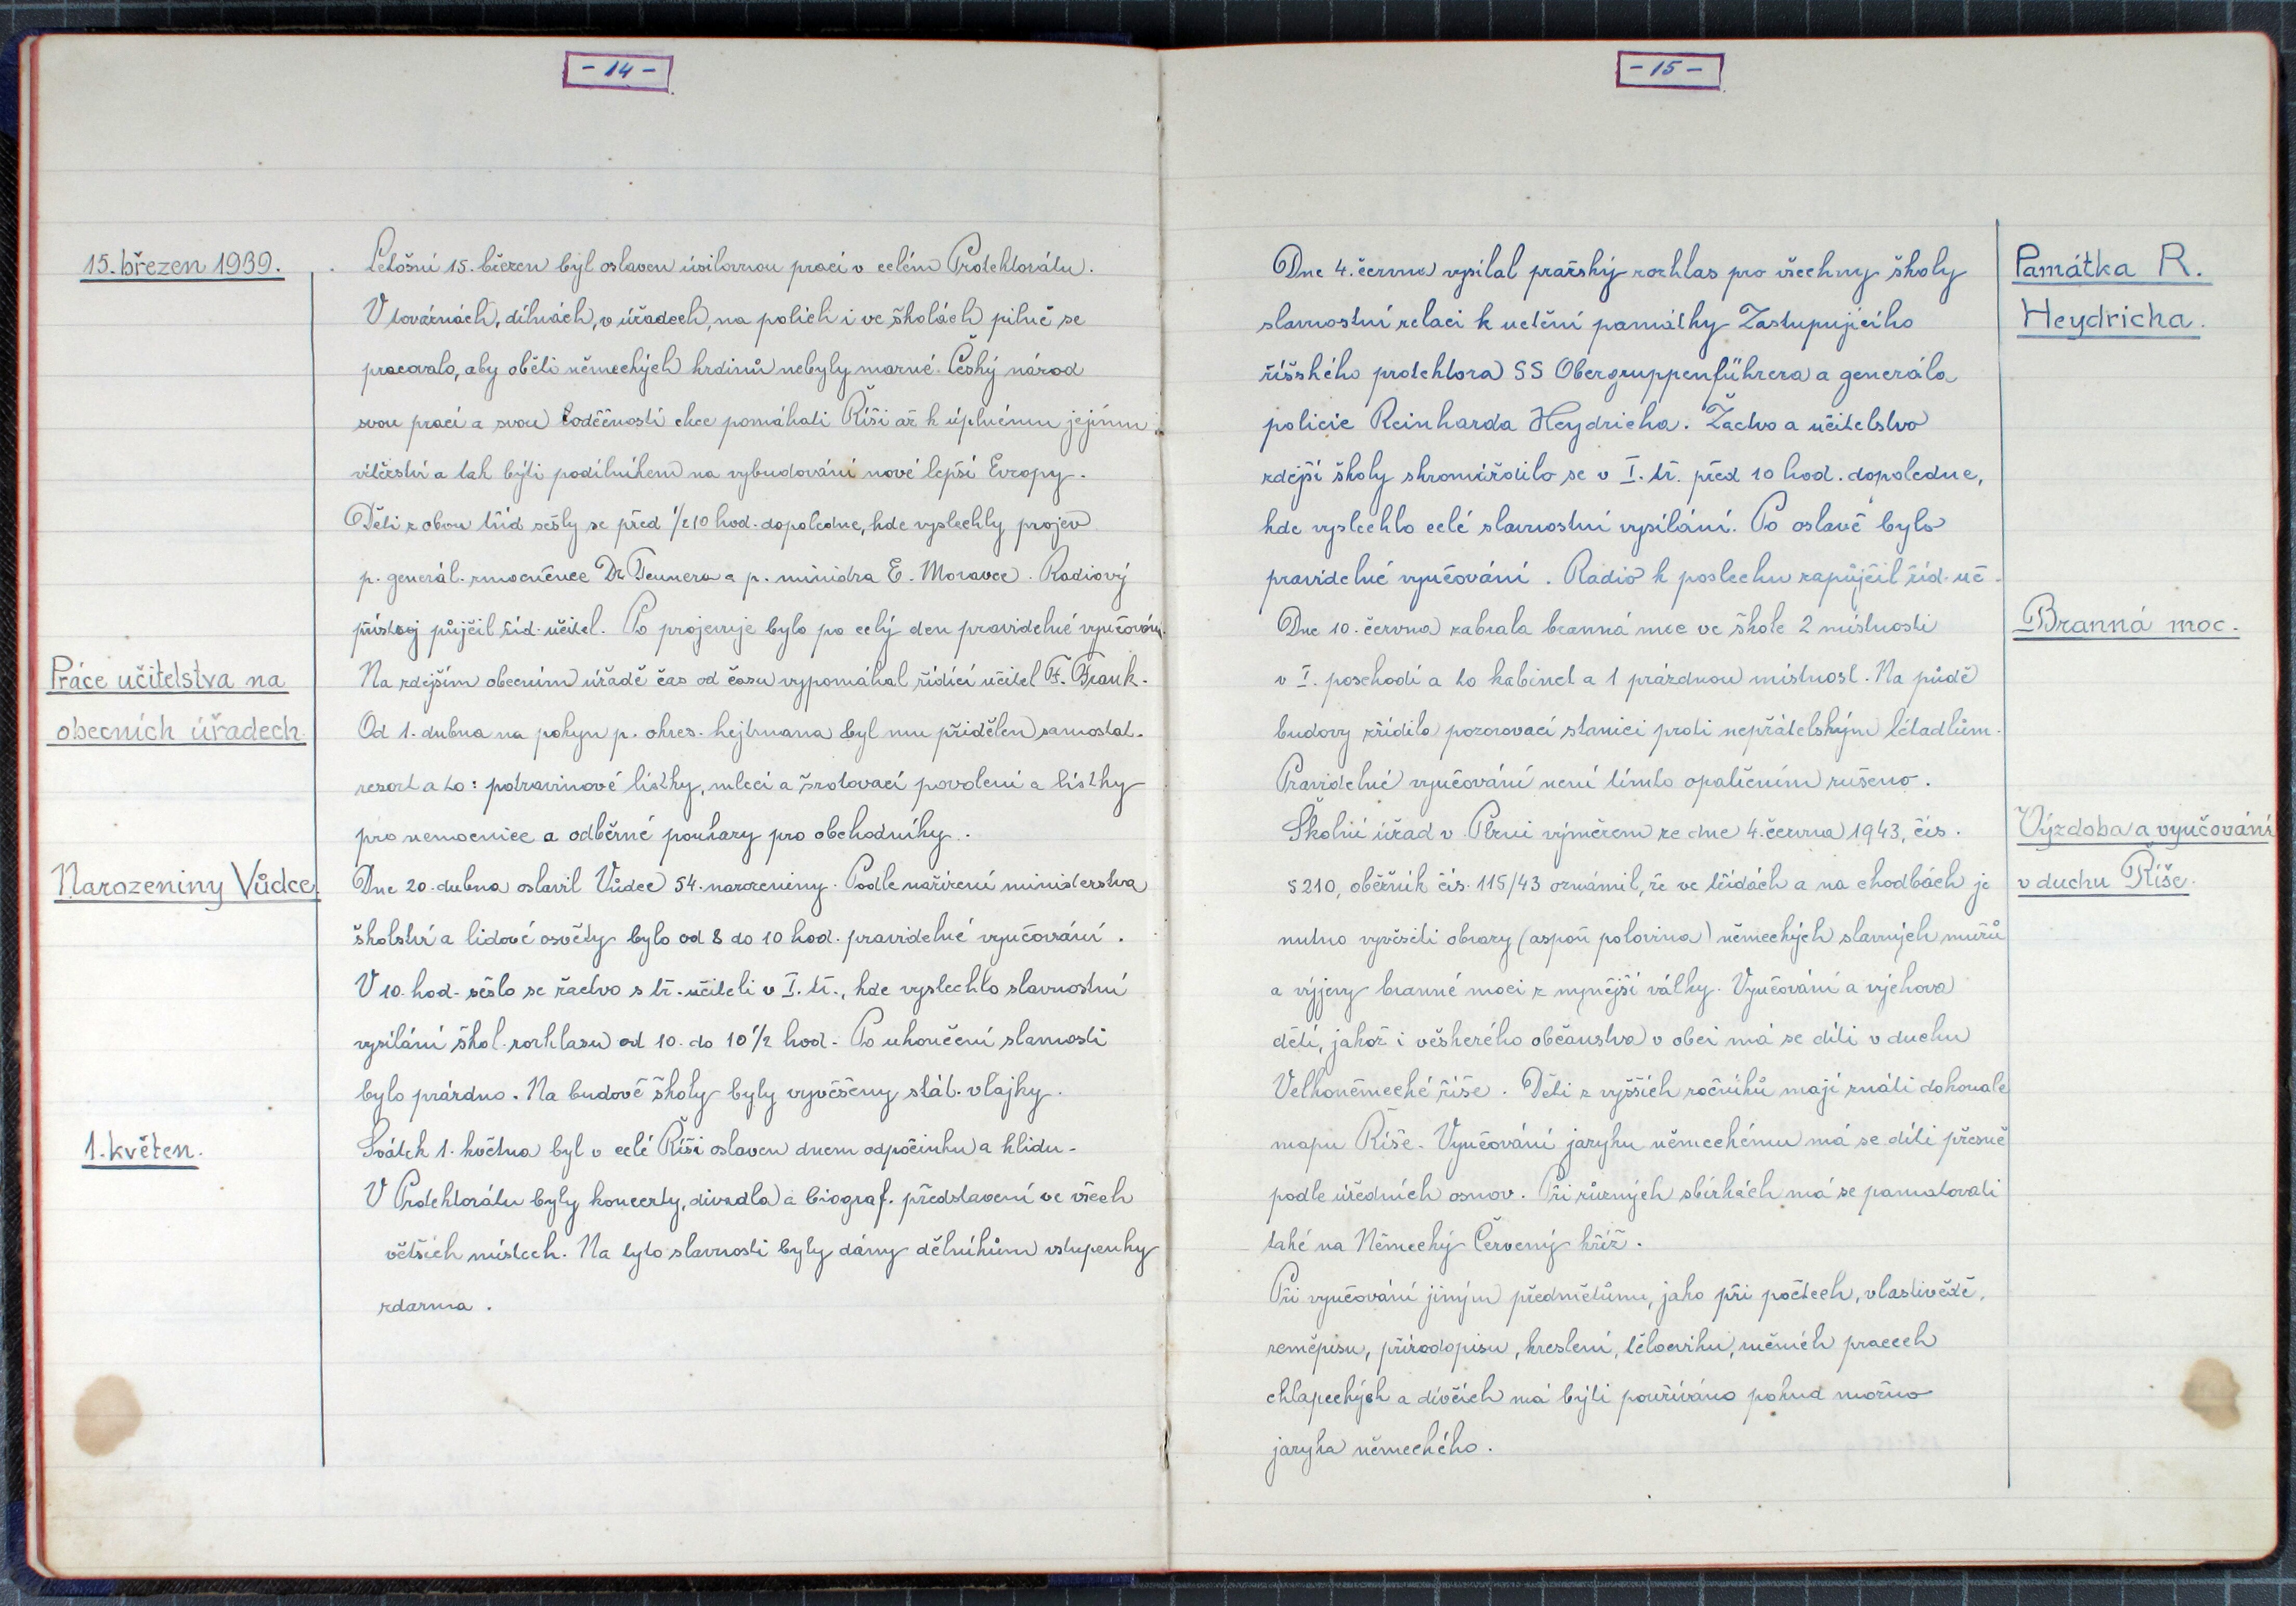 - 14 -
15. březen 1939.
Letošní 15. březen byl oslaven úsilovnou prací v celém Protektorátu.
V továrnách, dílnách, v úřadech, na polích i ve školách pilně se
pracovalo, aby oběti německých hrdinů nebyly marné. Český národ
svou prací a svou loděčností chce pomáhati Říši až k úplnému jejímu
vítězství a tak býti podílníkem na vybudování nové lepší Evropy.
Děti z obou tříd sešly se před ½10 hod. dopoledne, kde vyslechly projev
p. generál. zmocněnce Dr. Teunera a p. ministra E. Moravce. Radiový
přístroj půjčil říd. učitel. Po projevu bylo po celý den pravidelné vyučování.
Práce učitelstva na
obecních úřadech.
Na zdejším obecním úřadě čas od času vypomáhal řídící učitel F. Frank.
Od 1. dubna na pokyn p. okres. hejtmana byl mu přidělen samostat.
resort a to: potravinové lístky, mlecí a šrotovací povolení a lístky
pro nemocnice a odběrné poukazy pro obchodníky.
Narozeniny Vůdce
Dne 20. dubna oslavil Vůdce 54. narozeniny. Podle nařízení ministerstva
školství a lidové osvěty bylo od 8 do 10 hod. pravidelné vyučování.
V 10. hod. sešlo se žactvo s tř. učiteli v I. tř., kde vyslechlo slavnostní
vysílání škol. rozhlasu od 10. do 10 ½ hod. Po ukončení slavnosti
bylo prázdno. Na budově školy byly vyvěšeny stát. vlajky.
1. květen.
Svátek 1. května byl v celé Říši oslaven dnem odpočinku a klidu.
V Protektorátu byly koncerty, divadla a biograf. představení ve všech
větších místech. Na tyto slavnosti byly dány dělníkům vstupenky
zdarma.
- 15 -
Památka R.
Heydricha.
Dne 4. června vysílal pražský rozhlas pro všechny školy
slavnostní relaci k uctění památky Zastupujícího
říšského protektora SS Obergruppenführera a generála
policie Reinharda Heydricha. Žactvo a učitelstvo
zdejší školy shromáždilo se v I. tř. před 10 hod. dopoledne,
kde vyslechlo celé slavnostní vysílání. Po oslavě bylo
pravidelné vyučování. Radio k poslechu zapůjčil říd. uč.
Branná moc.
Dne 10. června zabrala branná moc ve škole 2 místnosti
v I. poschodí a to kabinet a 1 prázdnou místnost. Na půdě
budovy zřídila pozorovací stanici proti nepřátelským letadlům.
Pravidelné vyučování není tímto opatřením rušeno.
Výzdoba a vyučování
v duchu Říše.
Školní úřad v Plzni výměrem ze dne 4. června 1943, čís.
5210, oběžník čís. 115/43 oznámil, že ve třídách a na chodbách je
nutno vyvěsiti obrazy (aspoň polovina) německých slavných mužů
a výjevy branné moci z nynější války. Vyučování a výchova
dětí, jakož i veškerého občanstva v obci má se díti v duchu
Velkoněmecké říše. Děti z vyšších ročníků mají znáti dokonale
mapu Říše. Vyučování jazyku německému má se díti přesně
podle úředních osnov. Při různých sbírkách má se pamatovati
také na Německý Červený kříž.
Při vyučování jiným předmětům, jako při počtech, vlastivědě,
zeměpisu, přírodopisu, kreslení, tělocviku, ručních pracech
chlapeckých a dívčích má býti používáno pokud možno
jazyka německého.